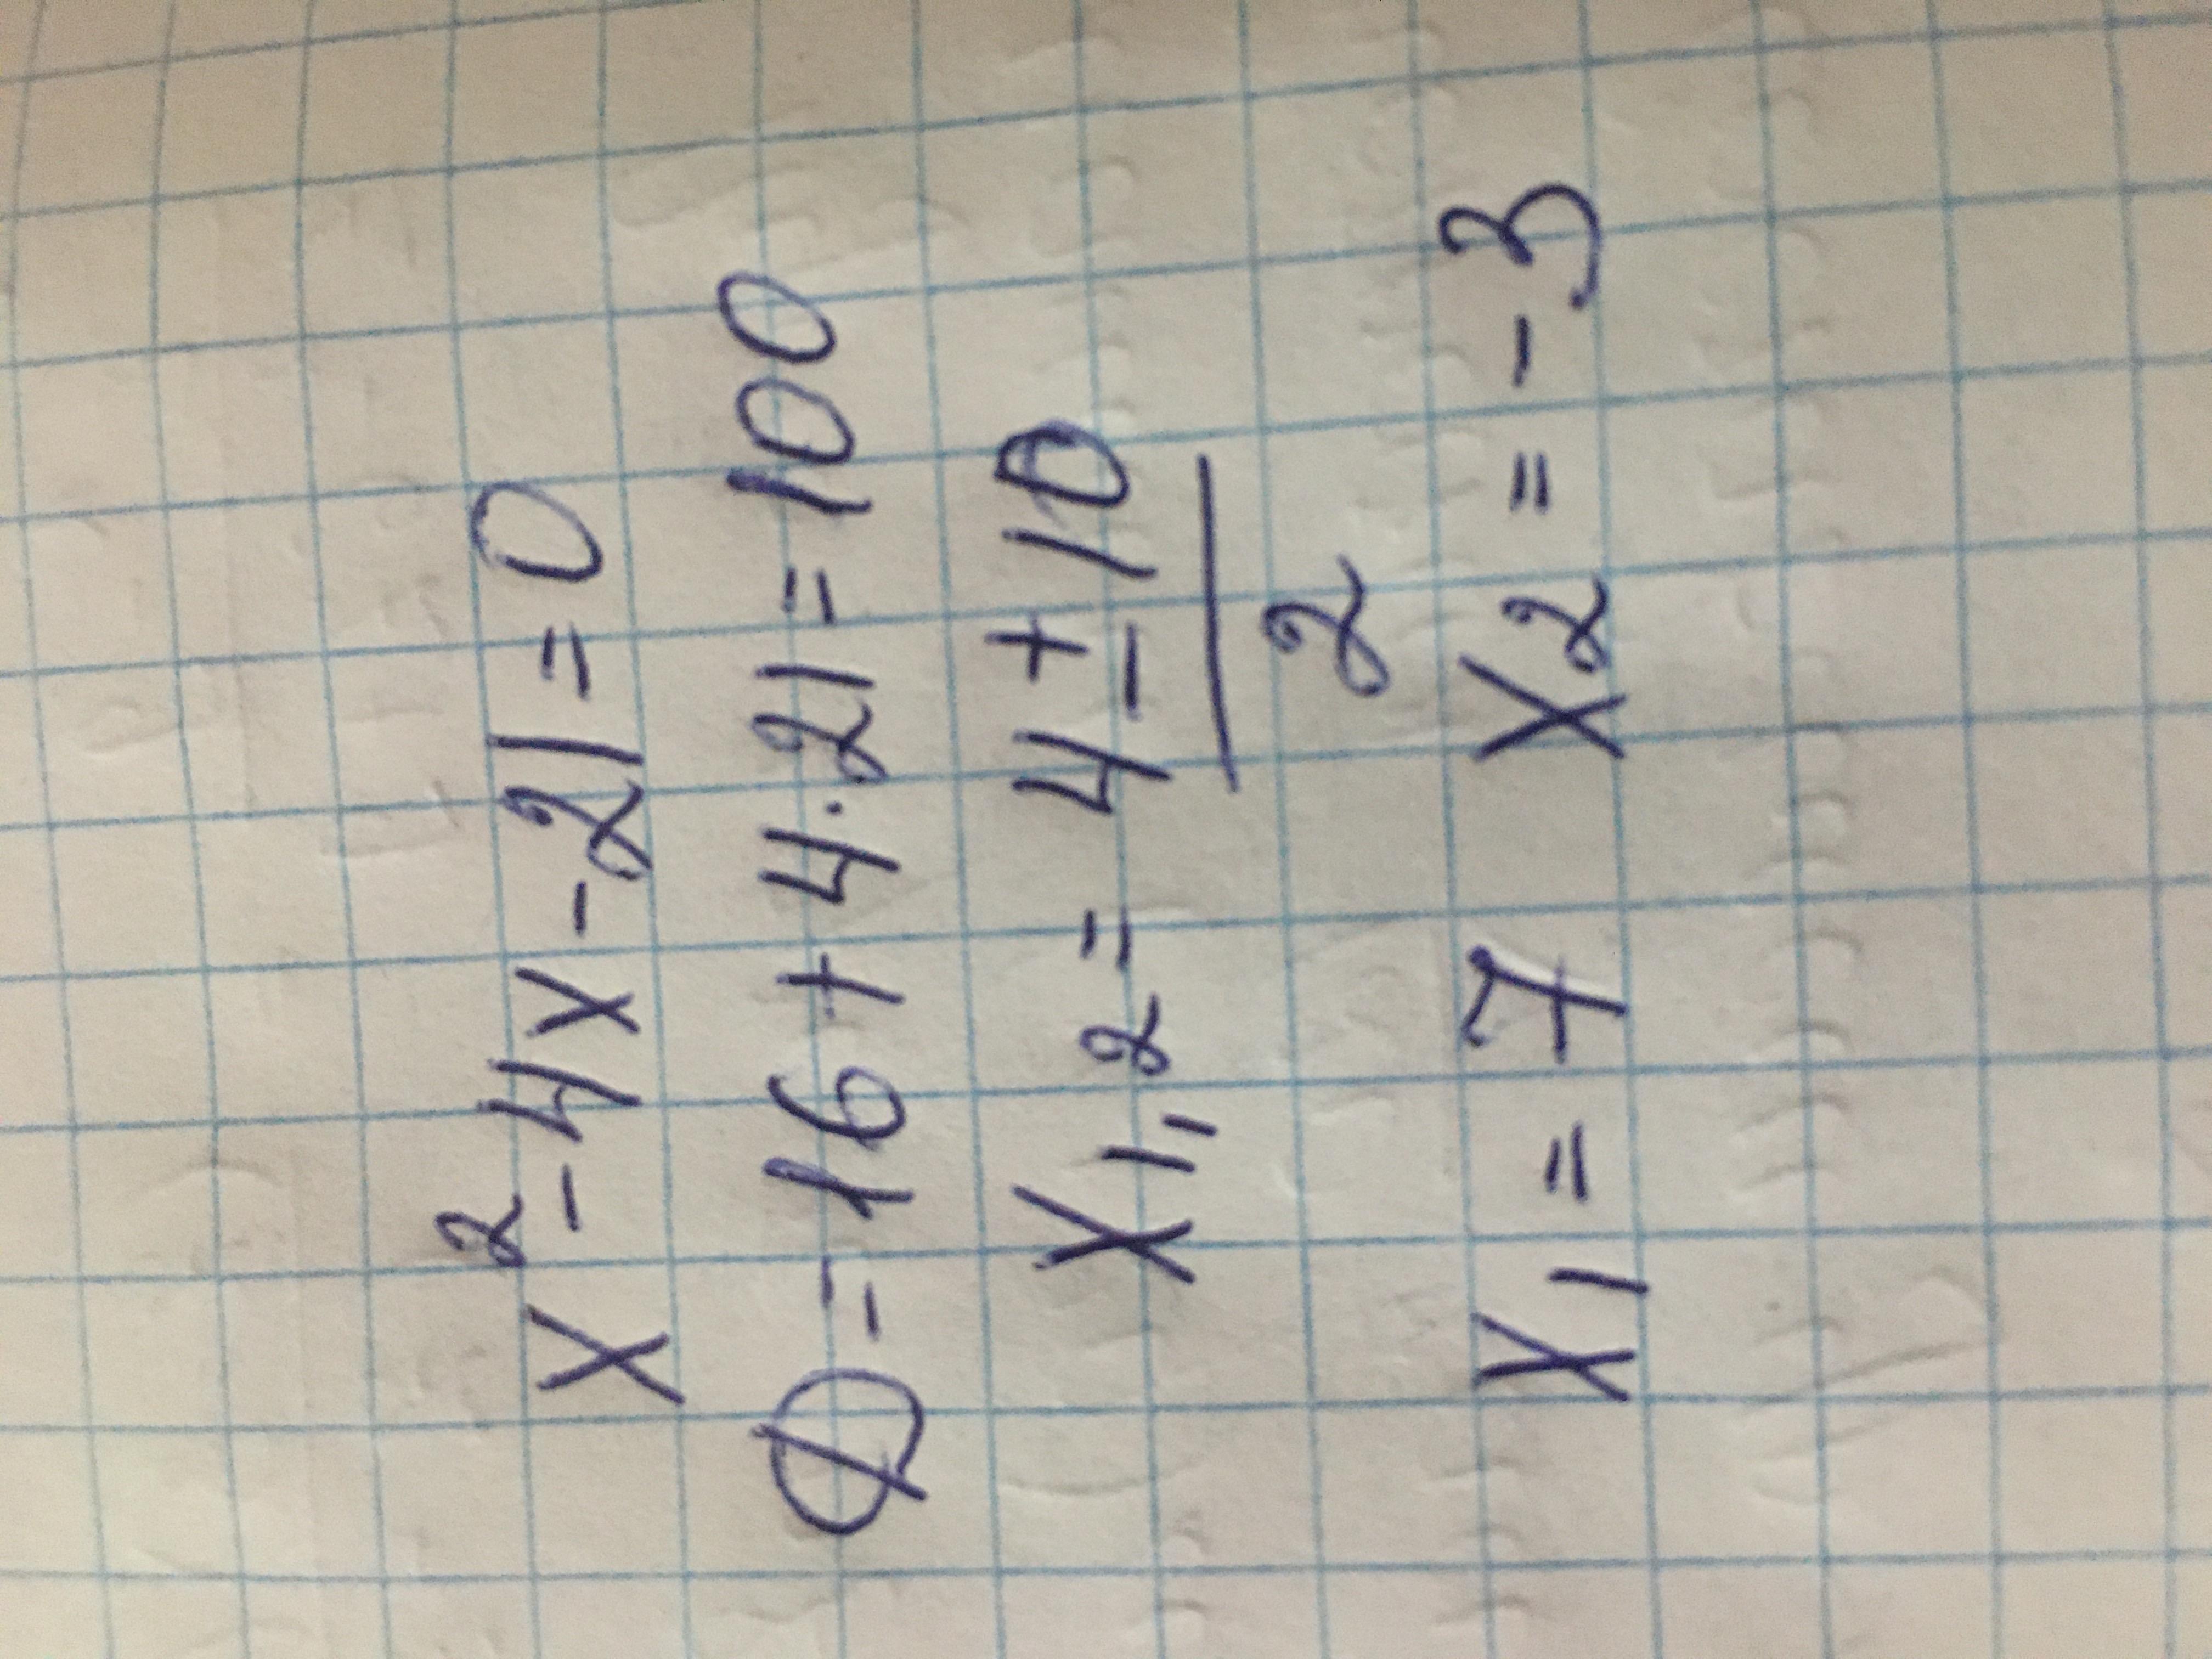 x² - 4x - 21 = 0
D = 16 + 4 · 21 = 100
x₁,₂ = (4 ± 10) / 2
x₁ = 7 x₂ = - 3